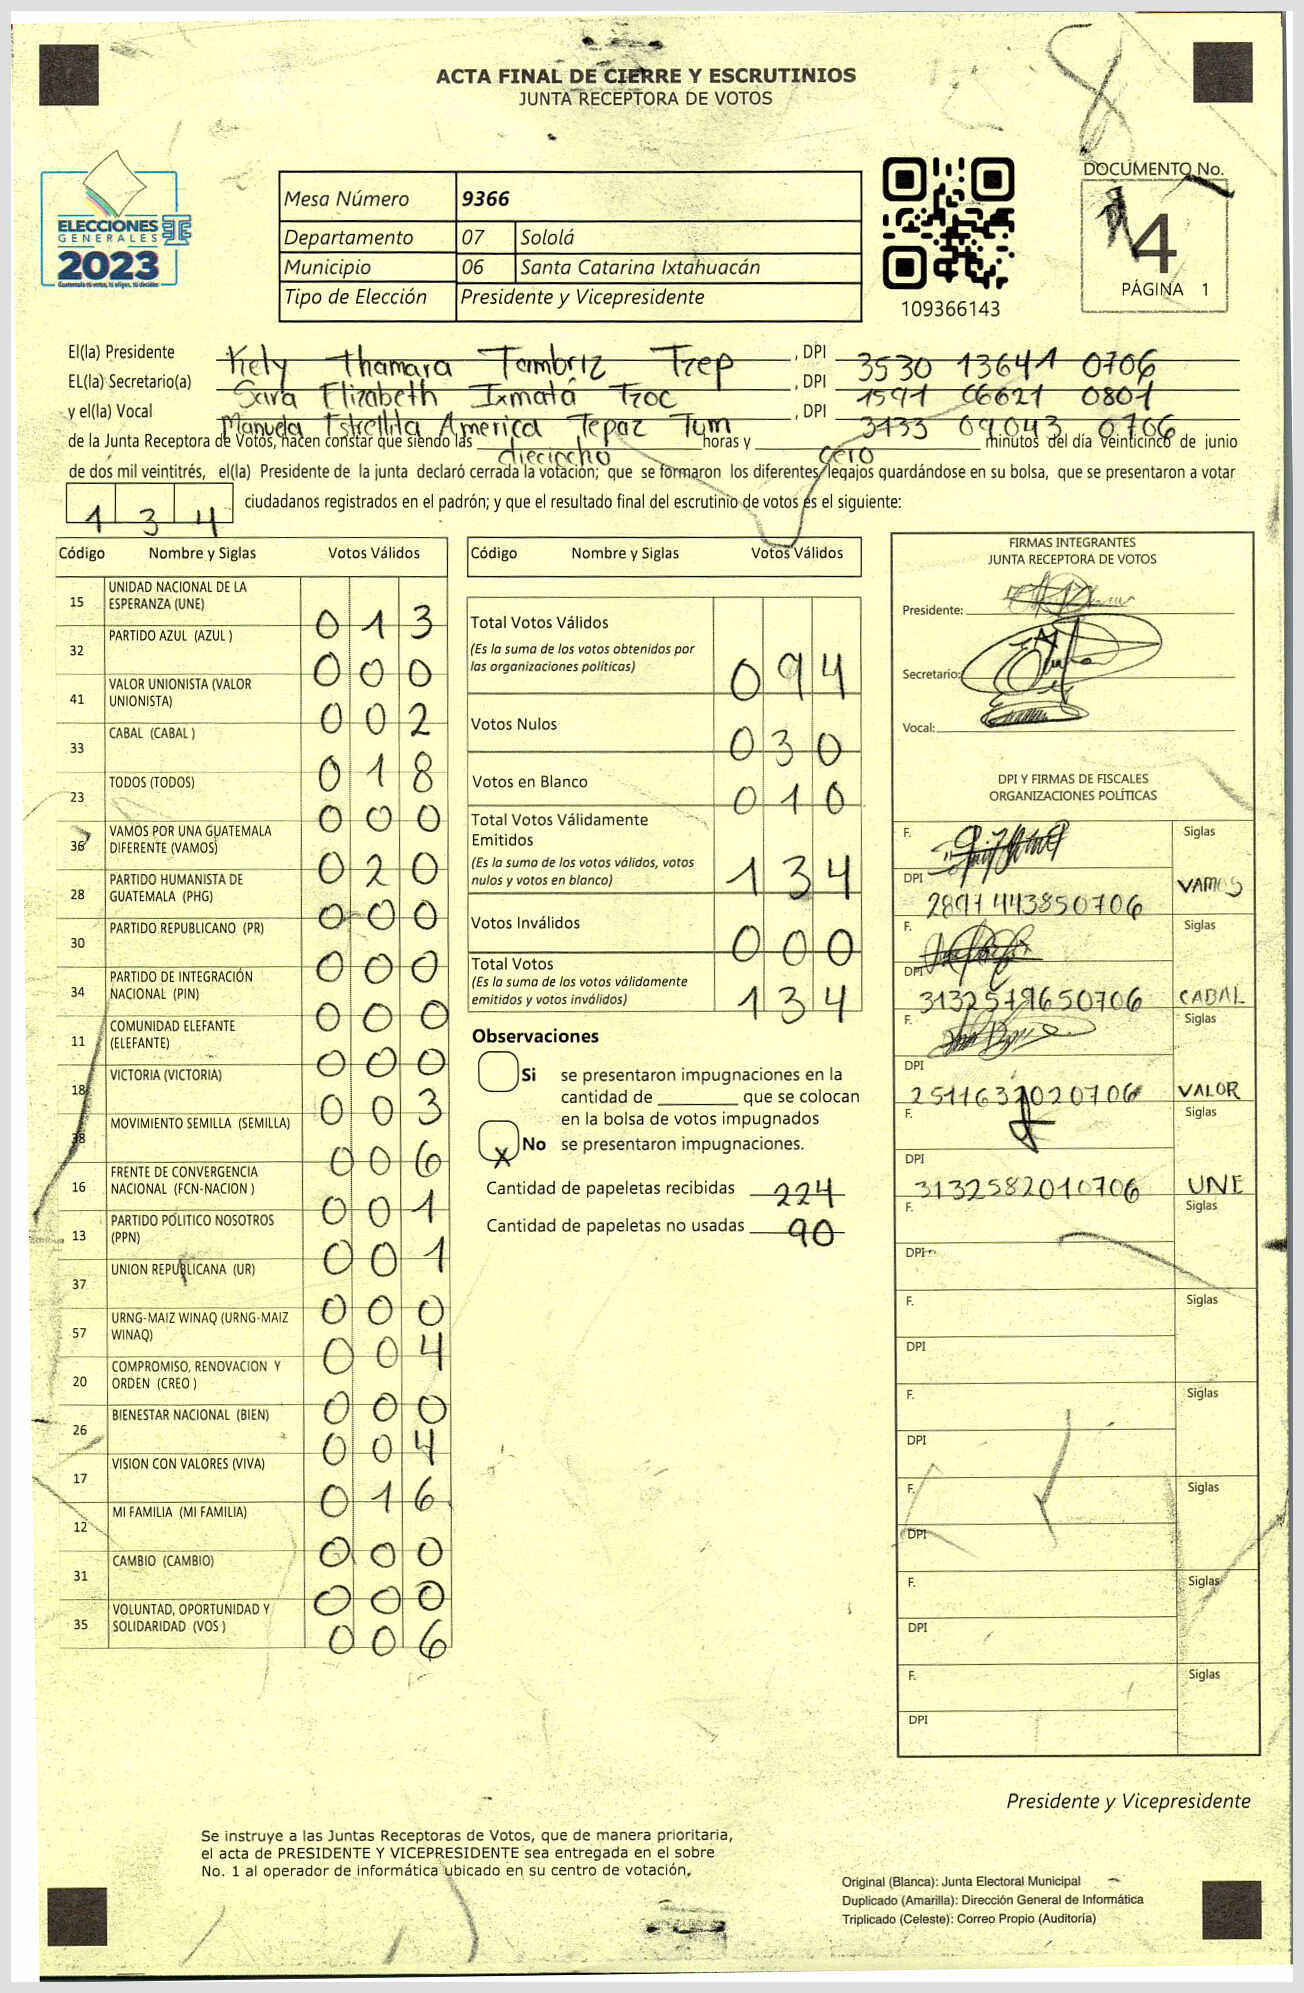 ACTA FINAL DE CIERRE Y ESCRUTINIOS
JUNTA RECEPTORA DE VOTOS
8
ELECCIONES
GENERALES
2023
Guatemala tú votas, tú eliges, tú decides
Mesa Número 9366
Departamento 07 Sololá
Municipio 06 Santa Catarina Ixtahuacán
Tipo de Elección Presidente y Vicepresidente
109366143
DOCUMENTO No.
4
PÁGINA 1
El(la) Presidente Kely Thamara Tambriz Tzep, DPI 3530 13641 0706
EL(la) Secretario(a) Sara Elizabeth Ixmatá Tzoc, DPI 1591 66621 0801
y el(la) Vocal Manuela Estrellita America Tepaz Tum, DPI 3133 09043 0706
de la Junta Receptora de Votos, hacen constar que siendo las dieciocho horas y cero minutos del día Veinticinco de junio
de dos mil veintitrés, el(la) Presidente de la junta declaró cerrada la votación; que se formaron los diferentes legajos quardándose en su bolsa, que se presentaron a votar
1 3 4 ciudadanos registrados en el padrón; y que el resultado final del escrutinio de votos es el siguiente:
Código Nombre y Siglas Votos Válidos
15 UNIDAD NACIONAL DE LA
ESPERANZA (UNE) 0 1 3
32 PARTIDO AZUL (AZUL ) 0 0 0
41 VALOR UNIONISTA (VALOR
UNIONISTA) 0 0 2
33 CABAL (CABAL ) 0 1 8
23 TODOS (TODOS) 0 0 0
36 VAMOS POR UNA GUATEMALA
DIFERENTE (VAMOS) 0 2 0
28 PARTIDO HUMANISTA DE
GUATEMALA (PHG) 0 0 0
30 PARTIDO REPUBLICANO (PR) 0 0 0
34 PARTIDO DE INTEGRACIÓN
NACIONAL (PIN) 0 0 0
11 COMUNIDAD ELEFANTE
(ELEFANTE) 0 0 0
18 VICTORIA (VICTORIA) 0 0 3
38 MOVIMIENTO SEMILLA (SEMILLA) 0 0 6
16 FRENTE DE CONVERGENCIA
NACIONAL (FCN-NACION ) 0 0 1
13 PARTIDO POLITICO NOSOTROS
(PPN) 0 0 1
37 UNION REPUBLICANA (UR) 0 0 0
57 URNG-MAIZ WINAQ (URNG-MAIZ
WINAQ) 0 0 4
20 COMPROMISO, RENOVACION Y
ORDEN (CREO ) 0 0 0
26 BIENESTAR NACIONAL (BIEN) 0 0 4
17 VISION CON VALORES (VIVA) 0 1 6
12 MI FAMILIA (MI FAMILIA) 0 0 0
31 CAMBIO (CAMBIO) 0 0 0
35 VOLUNTAD, OPORTUNIDAD Y
SOLIDARIDAD (VOS ) 0 0 6
Código Nombre y Siglas Votos Válidos
Total Votos Válidos
(Es la suma de los votos obtenidos por
las organizaciones políticas) 0 9 4
Votos Nulos 0 3 0
Votos en Blanco 0 1 0
Total Votos Válidamente
Emitidos
(Es la suma de los votos válidos, votos
nulos y votos en blanco) 1 3 4
Votos Inválidos 0 0 0
Total Votos
(Es la suma de los votos válidamente
emitidos y votos inválidos) 1 3 4
Observaciones
Si se presentaron impugnaciones en la
cantidad de ________ que se colocan
en la bolsa de votos impugnados
X No se presentaron impugnaciones.
Cantidad de papeletas recibidas 224
Cantidad de papeletas no usadas 90
FIRMAS INTEGRANTES
JUNTA RECEPTORA DE VOTOS
Presidente:
Secretario:
Vocal:
DPI Y FIRMAS DE FISCALES
ORGANIZACIONES POLÍTICAS
F. Siglas
DPI 2891443850706 VAMOS
F. Siglas
DPI 3132519650706 CABAL
F. Siglas
DPI 2511637020706 VALOR
F. Siglas
DPI 3132582010706 UNE
F. Siglas
DPI
F. Siglas
DPI
F. Siglas
DPI
F. Siglas
DPI
F. Siglas
DPI
F. Siglas
DPI
Presidente y Vicepresidente
Se instruye a las Juntas Receptoras de Votos, que de manera prioritaria,
el acta de PRESIDENTE Y VICEPRESIDENTE sea entregada en el sobre
No. 1 al operador de informática ubicado en su centro de votación.
Original (Blanca): Junta Electoral Municipal
Duplicado (Amarilla): Dirección General de Informática
Triplicado (Celeste): Correo Propio (Auditoría)